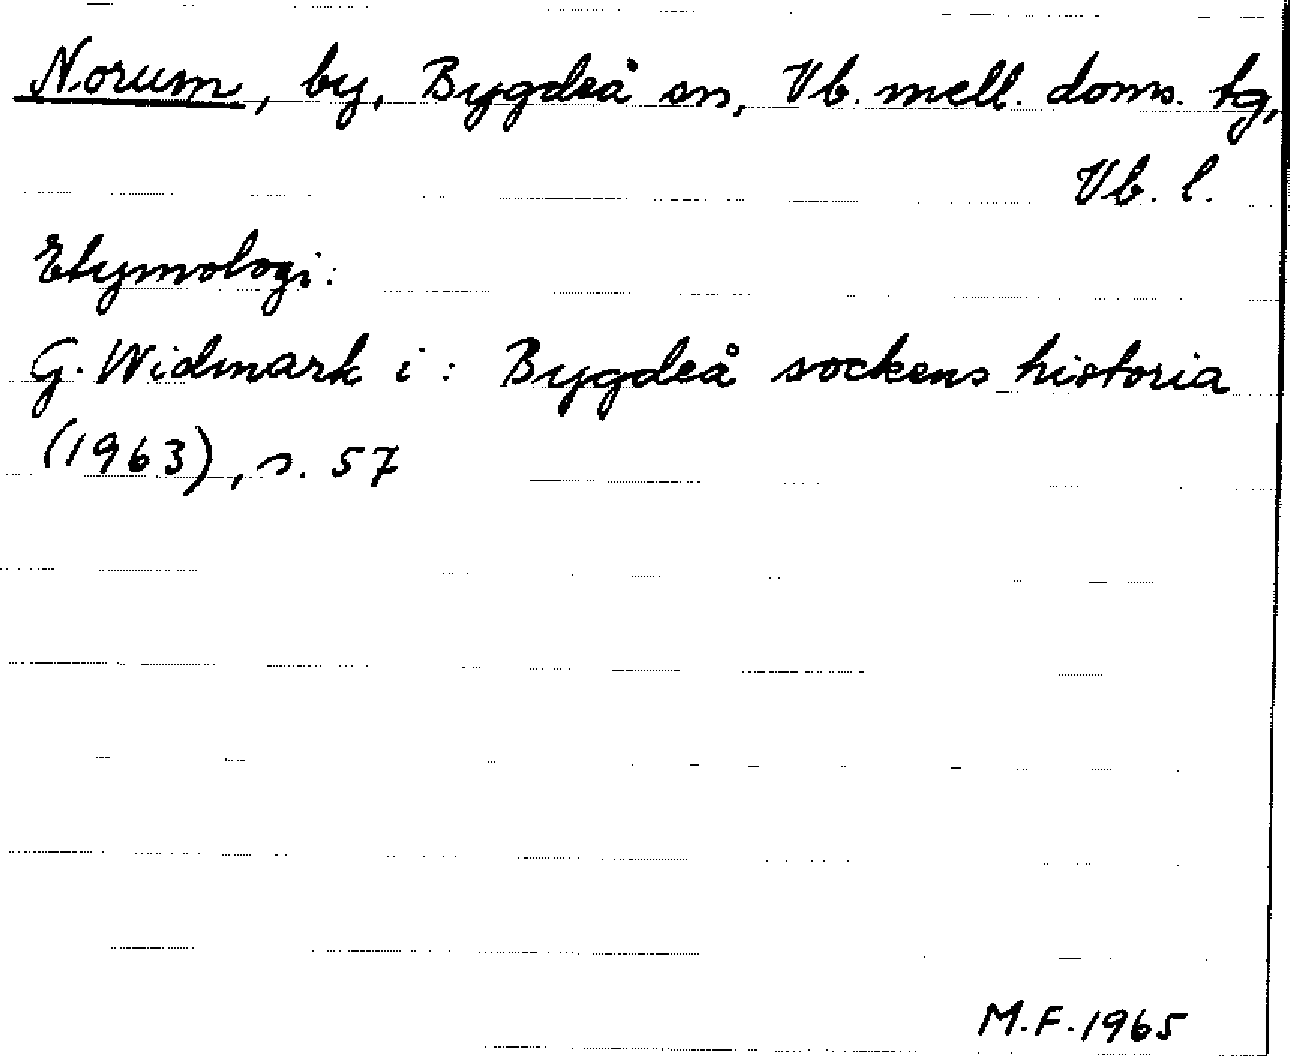 Norum, by, Bygdeå sn, Vb. mell. doms. tg,
Vb. l.
Etymologi:
G. Widmark i: Bygdeå sockens historia
(1963), s. 57
M.F. 1965